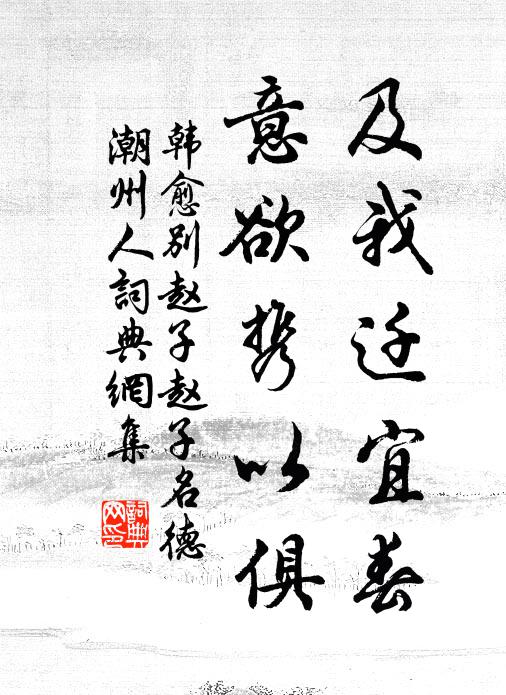 及我迁宜春
意欲携以俱
韩愈别赵子赵子名德
潮州人詞典網集
詞典
网印